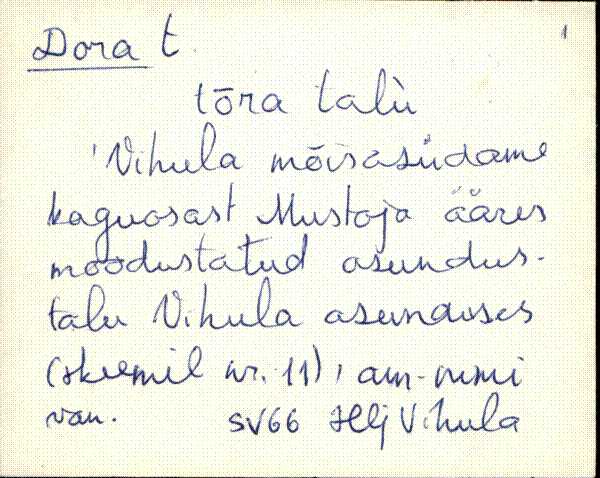 1
Dora t
tōra talù
'Vihula mõisasüdame
kaguosast Mustoja ääres
moodustatud asundus-
talu Vihula asunduses
(skeemil nr. 11), am-nimi
van. SV66 Hlj Vihula